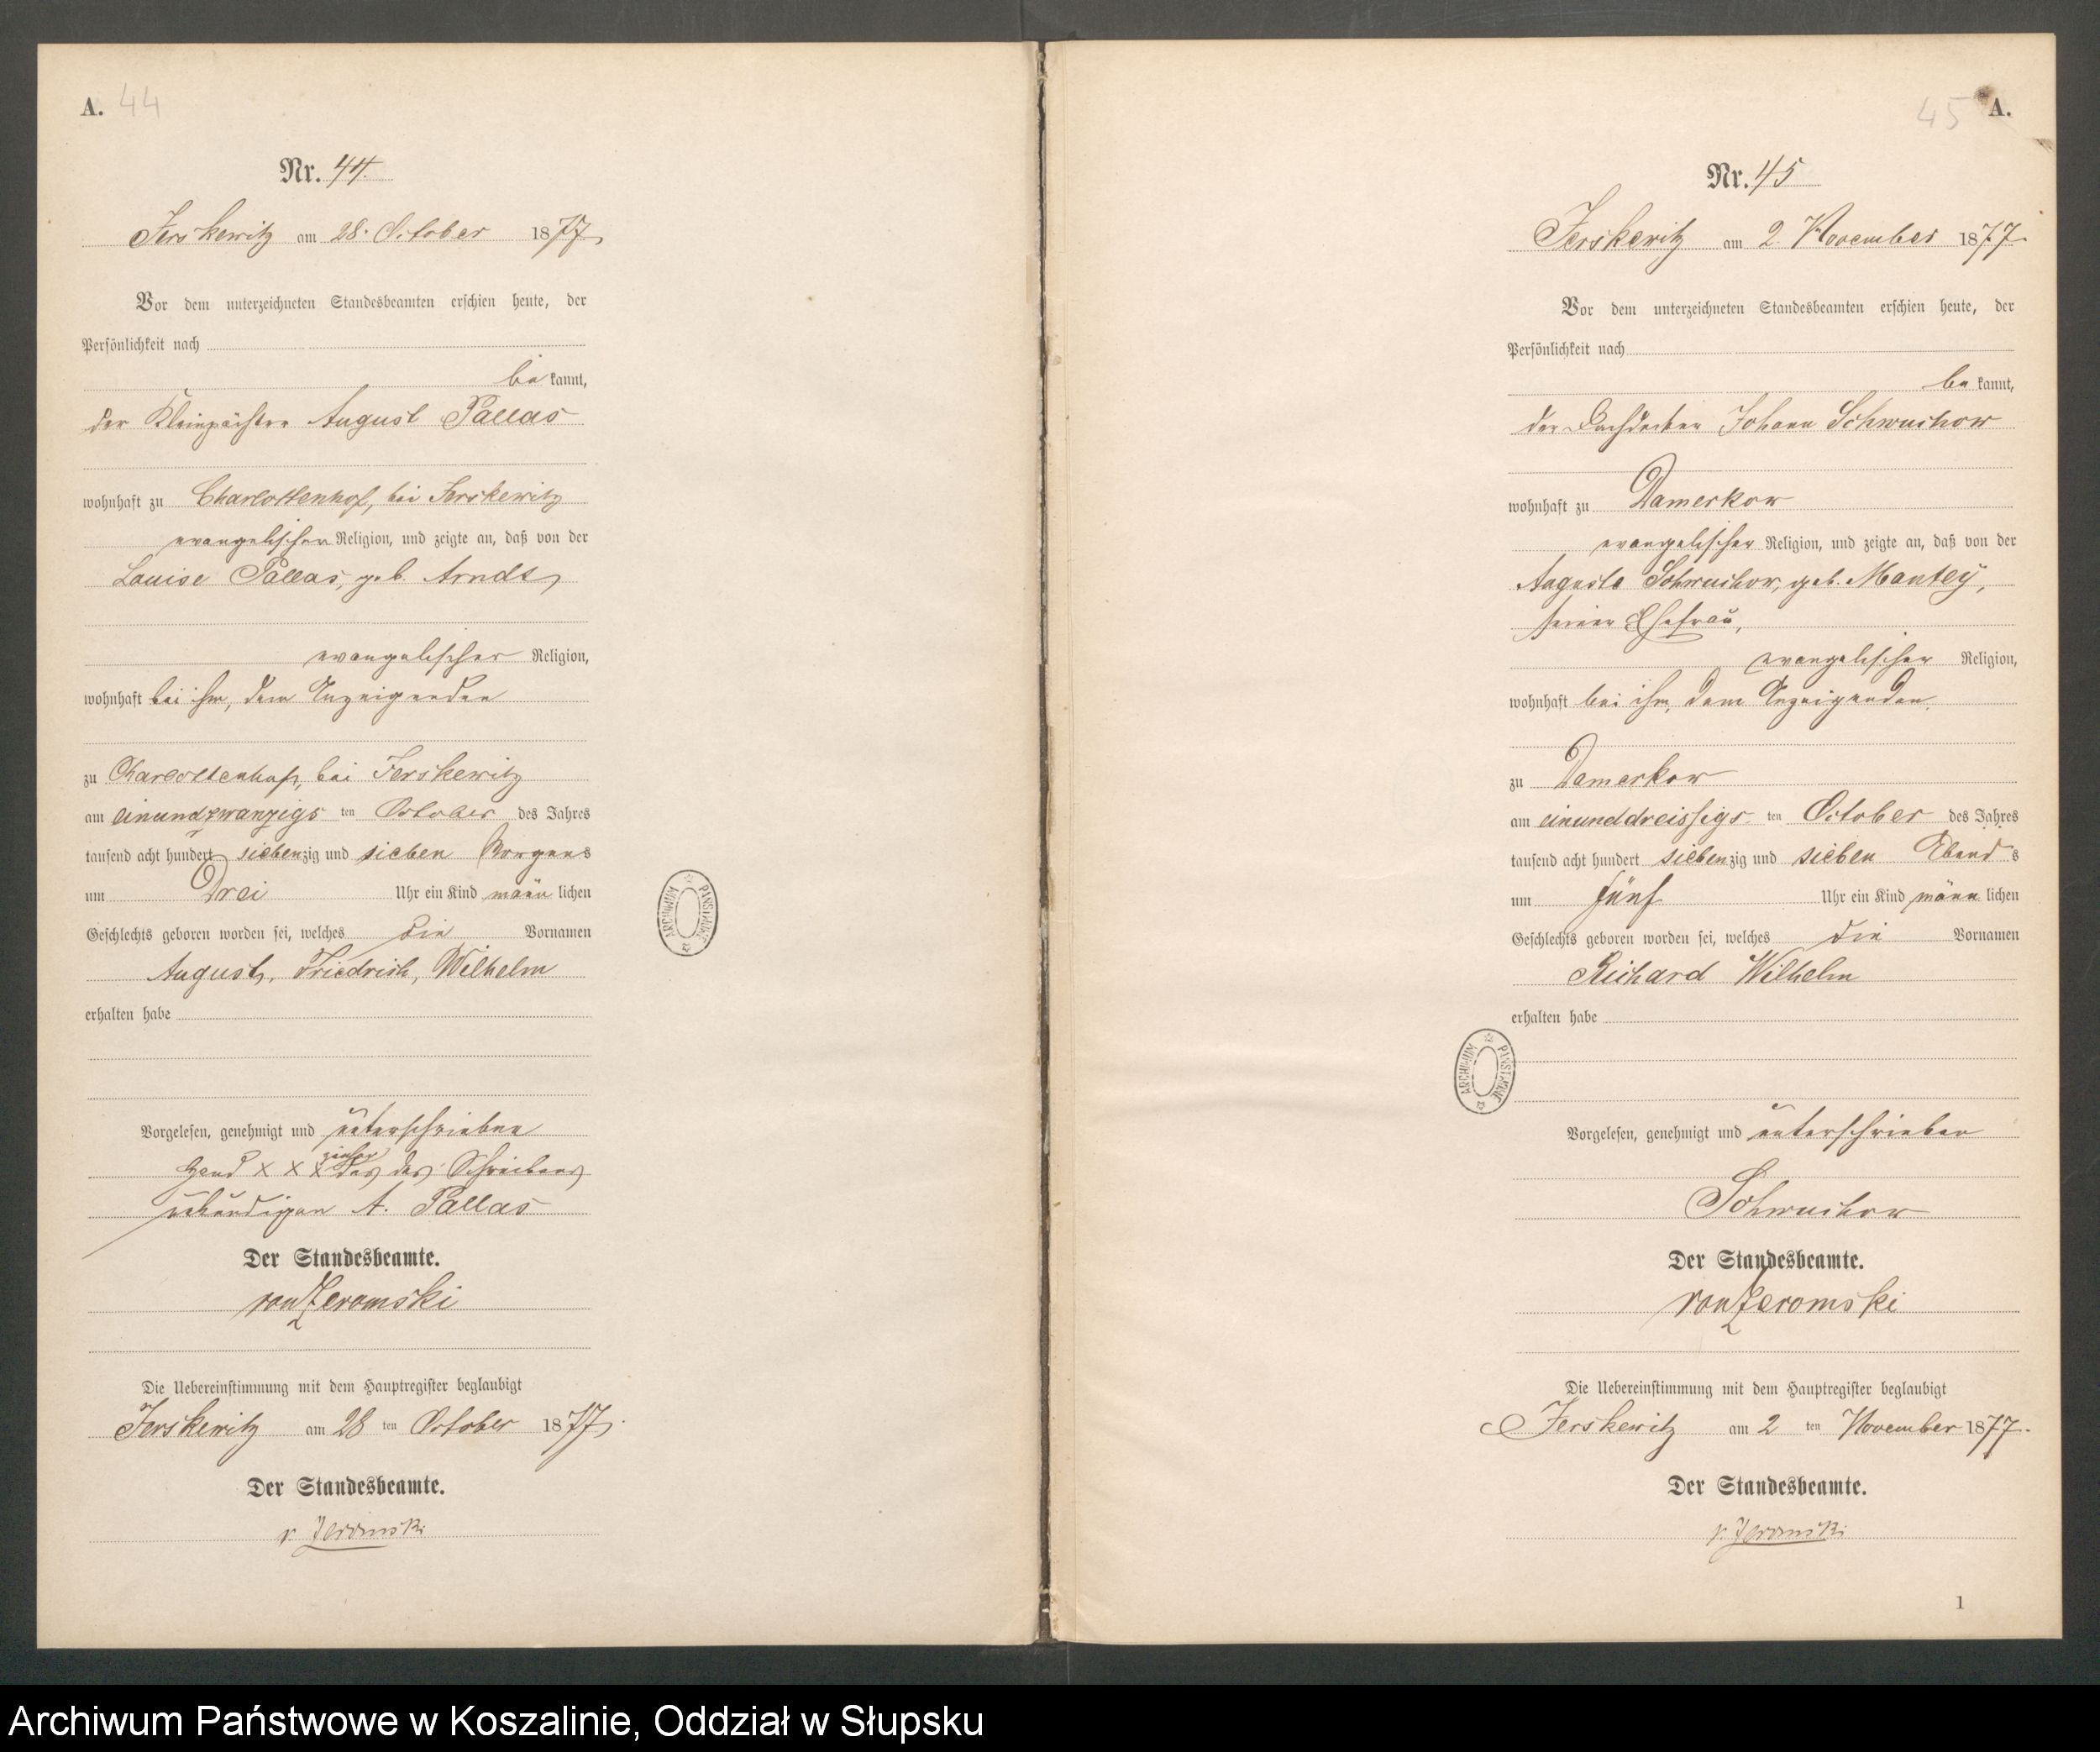 A. 44
Nr. 44.
Jerskewitz am 28. October 1877,
Vor dem unterzeichneten Standesbeamten erschien heute, der
Persönlichkeit nach
be kannt,
der Kleinpächter August Pallas
wohnhaft zu Charlottenhof, bei Jerskewitz
evangelischer Religion, und zeigte an, daß von der
Louise Pallas, geb. Arndt,
evangelischer Religion,
wohnhaft bei ihm, dem Anzeigenden
zu Charlottenhof, bei Jerskewitz
am einundzwanzigs ten October des Jahres
tausend acht hundert siebenzig und sieben Morgens
um Drei Uhr ein Kind männ lichen
Geschlechts geboren worden sei, welches die Vornamen
August, Friedrich, Wilhelm
erhalten habe
Vorgelesen, genehmigt und unterschrieben
x x x des Schreibens
A. Pallas
Der Standesbeamte.
von Zeromski
Die Uebereinstimmung mit dem Hauptregister beglaubigt
Jerskewitz am 28 ten October 1877.
Der Standesbeamte.
v. Zeromski
ARCHIWUM PAŃSTWOWE
45 A.
Nr. 45
Jerskewitz am 2. November 1877.
Vor dem unterzeichneten Standesbeamten erschien heute, der
Persönlichkeit nach
be kannt,
der Dachdecker Johann Schwuchow
wohnhaft zu Damerkow
evangelischer Religion, und zeigte an, daß von der
Auguste Schwuchow, geb. Mantey,
seiner Ehefrau,
evangelischer Religion,
wohnhaft bei ihm, dem Anzeigenden.
zu Damerkow
am einunddreissigs ten October des Jahres
tausend acht hundert siebenzig und sieben Abend s
um fünf Uhr ein Kind männ lichen
Geschlechts geboren worden sei, welches die Vornamen
Richard Wilhelm
erhalten habe
ARCHIWUM PAŃSTWOWE
Vorgelesen, genehmigt und unterschrieben
Schwuchow
Der Standesbeamte.
von Zeromski
Die Uebereinstimmung mit dem Hauptregister beglaubigt
Jerskewitz am 2 ten November 1877.
Der Standesbeamte.
v. Zeromski
1
Archiwum Państwowe w Koszalinie, Oddział w Słupsku